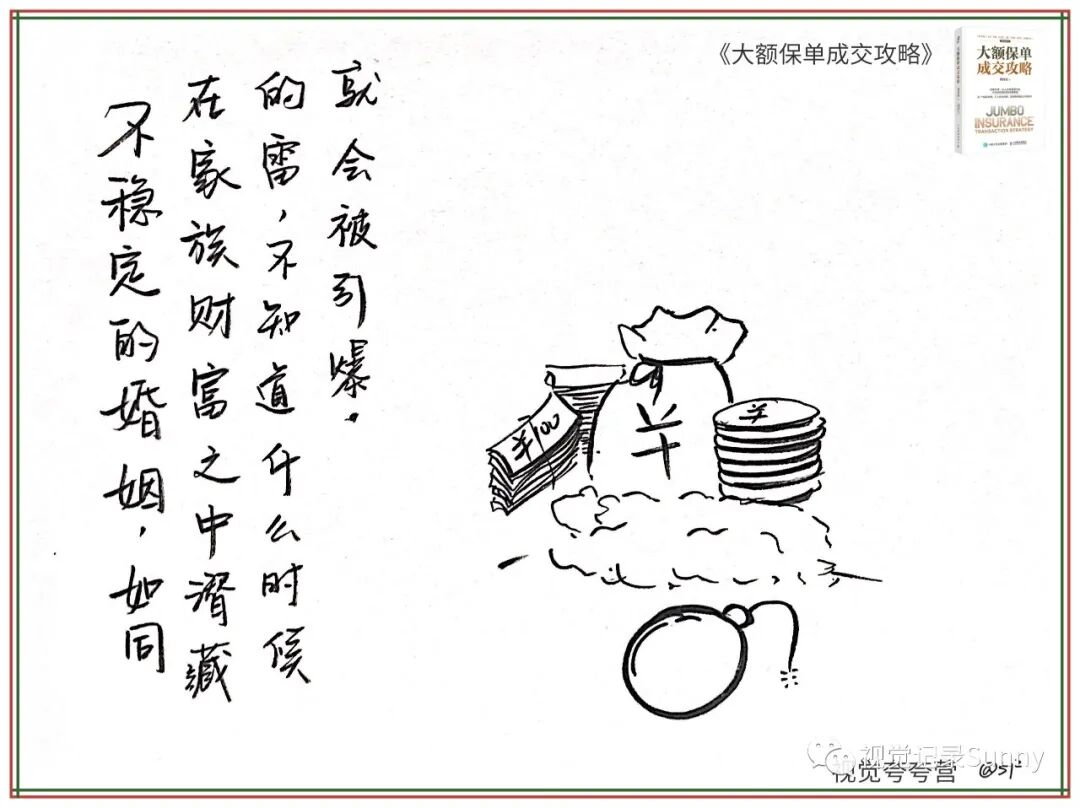 《大额保单成交攻略》
大额保单
成交攻略
JUMBO
INSURANCE
TRANSACTION STRATEGY
不稳定的婚姻，如同
在家族财富之中潜藏
的雷，不知道什么时候
就会被引爆.
¥100
¥
¥
视觉记录Sunny
视觉夸夸营